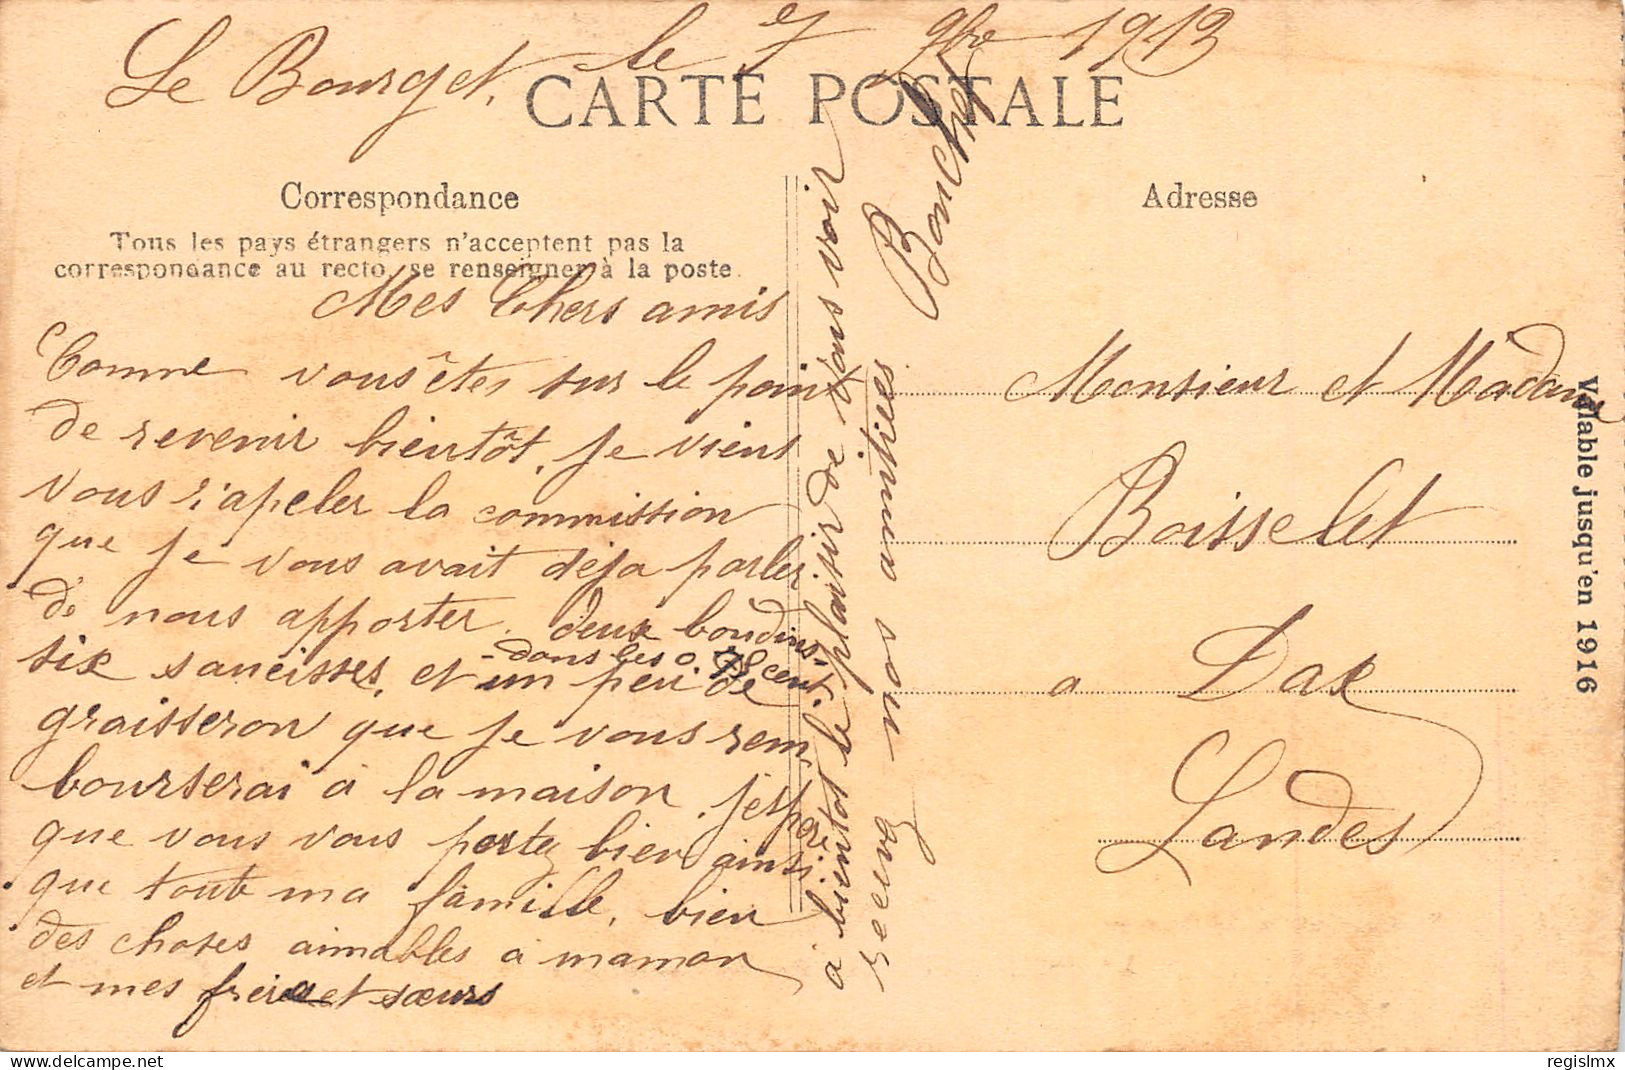 Le Bourget, le 7 9bre 1913
CARTE POSTALE
Correspondance
Tous les pays étrangers n'acceptent pas la
correspondance au recto, se renseigner à la poste.
Mes Chers amis
Comme vous êtes sur le point
de revenir bientôt, je viens
vous r'apeler la commission
que je vous avait déja parler
de nous apporter deux boudins
- dans les 0,75 cent. -
six saucisses, et un peu de
graisseron que je vous rem
bourserai à la maison. j'espère
que vous vous portez bien ainsi
que toute ma famille, bien
des choses aimables a maman
et mes frères et sœurs
a bientot le plaisir de vous voir
recevez nos meilleures
Adresse
Monsieur et Madame
Boisselet
a Dax
Landes
Vallable jusqu'en 1916
delcampe.net
regislmx